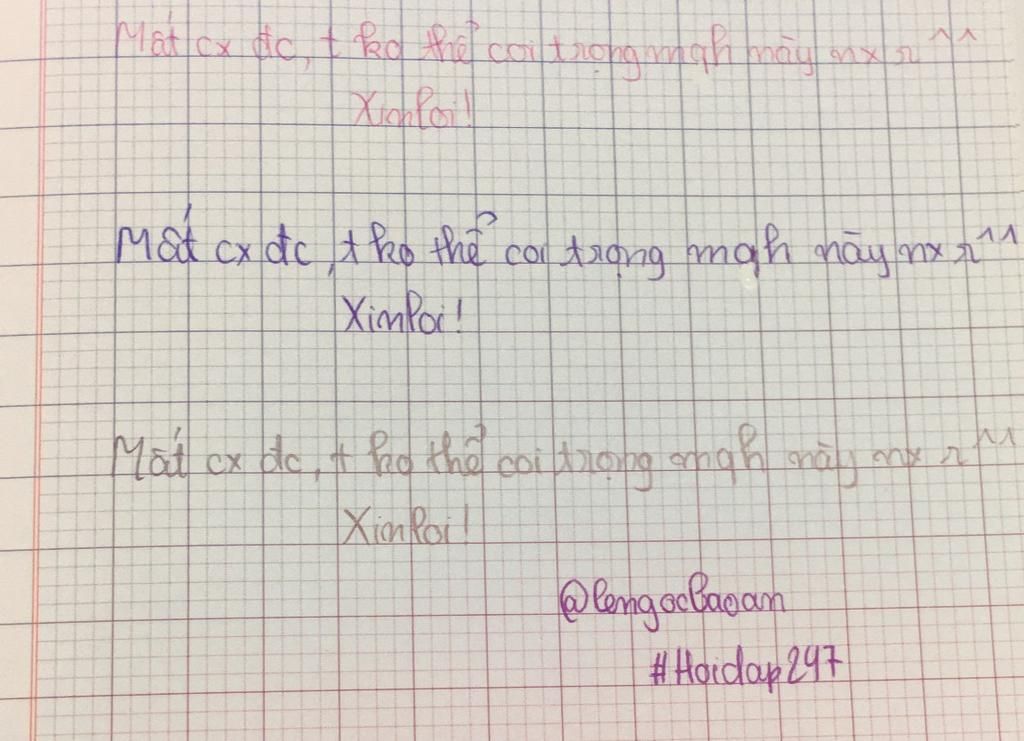 Mất cx đc, t ko thể coi trọng mqh này nx r ^^
Xinloi!
Mất cx đc, t ko thể coi trọng mqh này nx r ^^
Xinloi!
Mất cx đc, t ko thể coi trọng mqh này nx r ^^
Xinloi!
@lengocbaoan
#Hoidap247